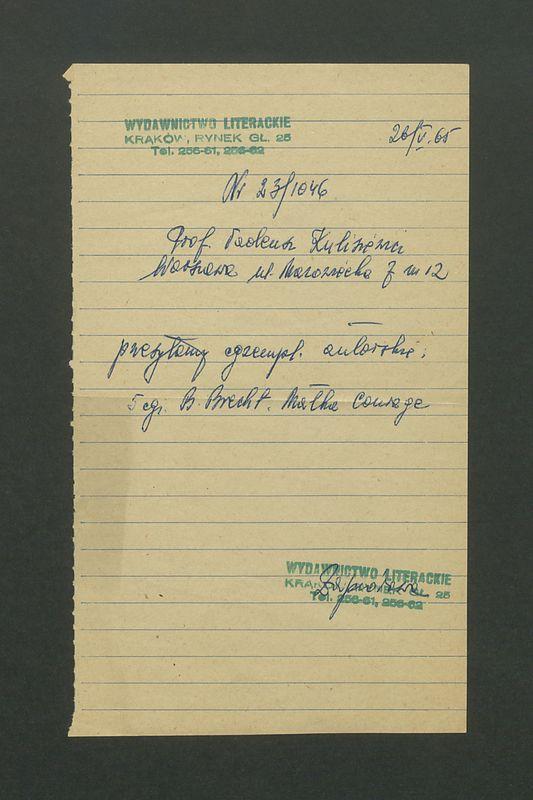 WYDAWNICTWO LITERACKIE
KRAKÓW, RYNEK GŁ. 25
Tel. 256-61, 256-62
26/V.65
Nr 23/1046
Prof. Tadeusz Kulisiewicz
Warszawa ul. Marszałka 7 m 12
przesyłamy egzempl. autorskie:
5 egz. B. Brecht. Matka Courage
WYDAWNICTWO LITERACKIE
KRAKÓW, RYNEK GŁ. 25
Tel. 256-61, 256-62